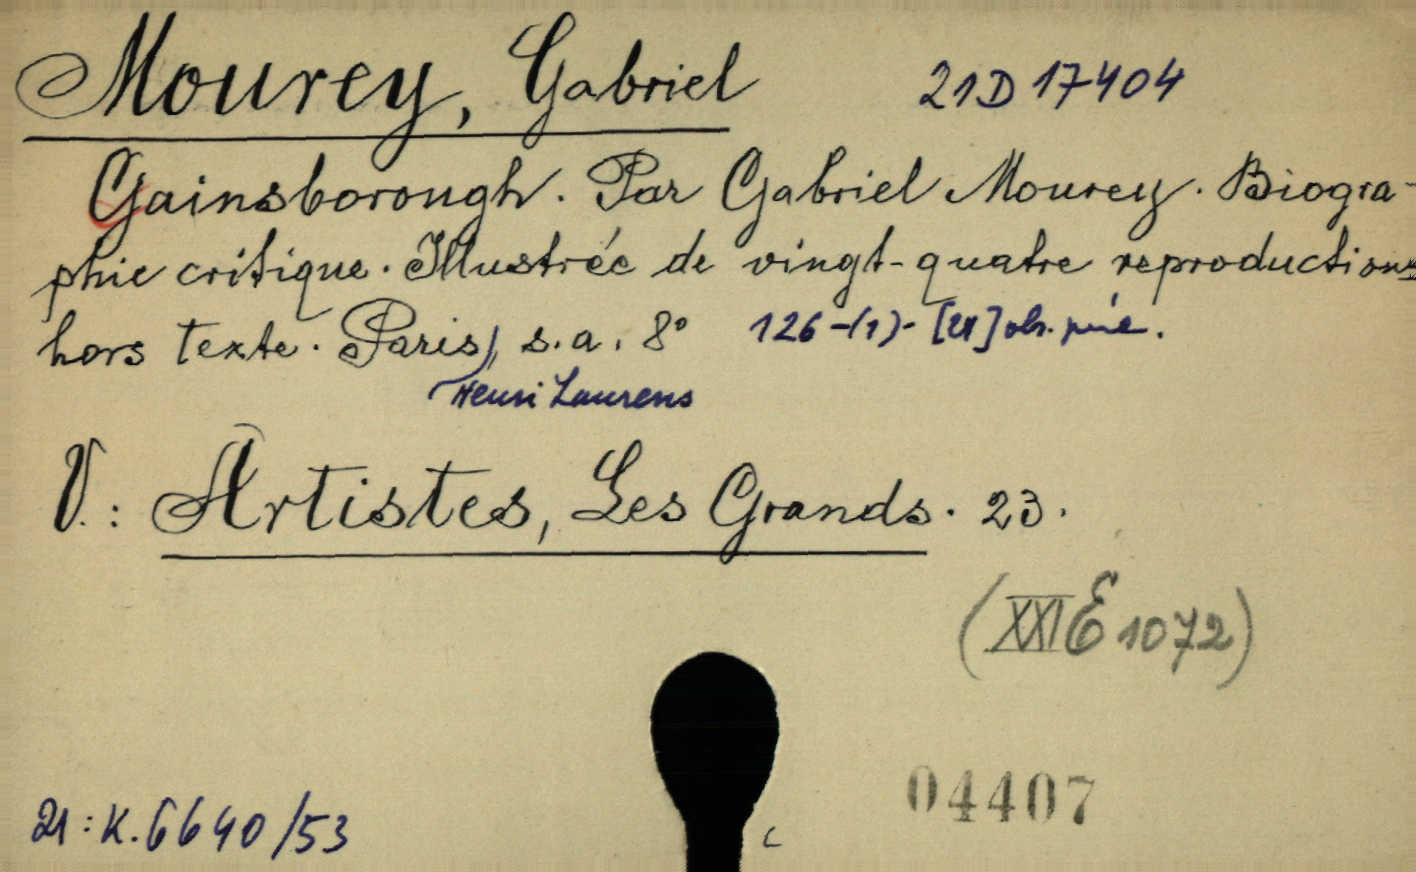 Mourey, Gabriel 21D 17404
Gainsborough. Par Gabriel Mourey. Biogra-
phie critique. Illustrée de vingt-quatre reproductions
hors texte. Paris, s.a. 8° 126-(1)- obr.
Henri Laurens
V.: Artistes, Les Grands. 23.
(XXI E 1072)
04407
21: K. 6640/53